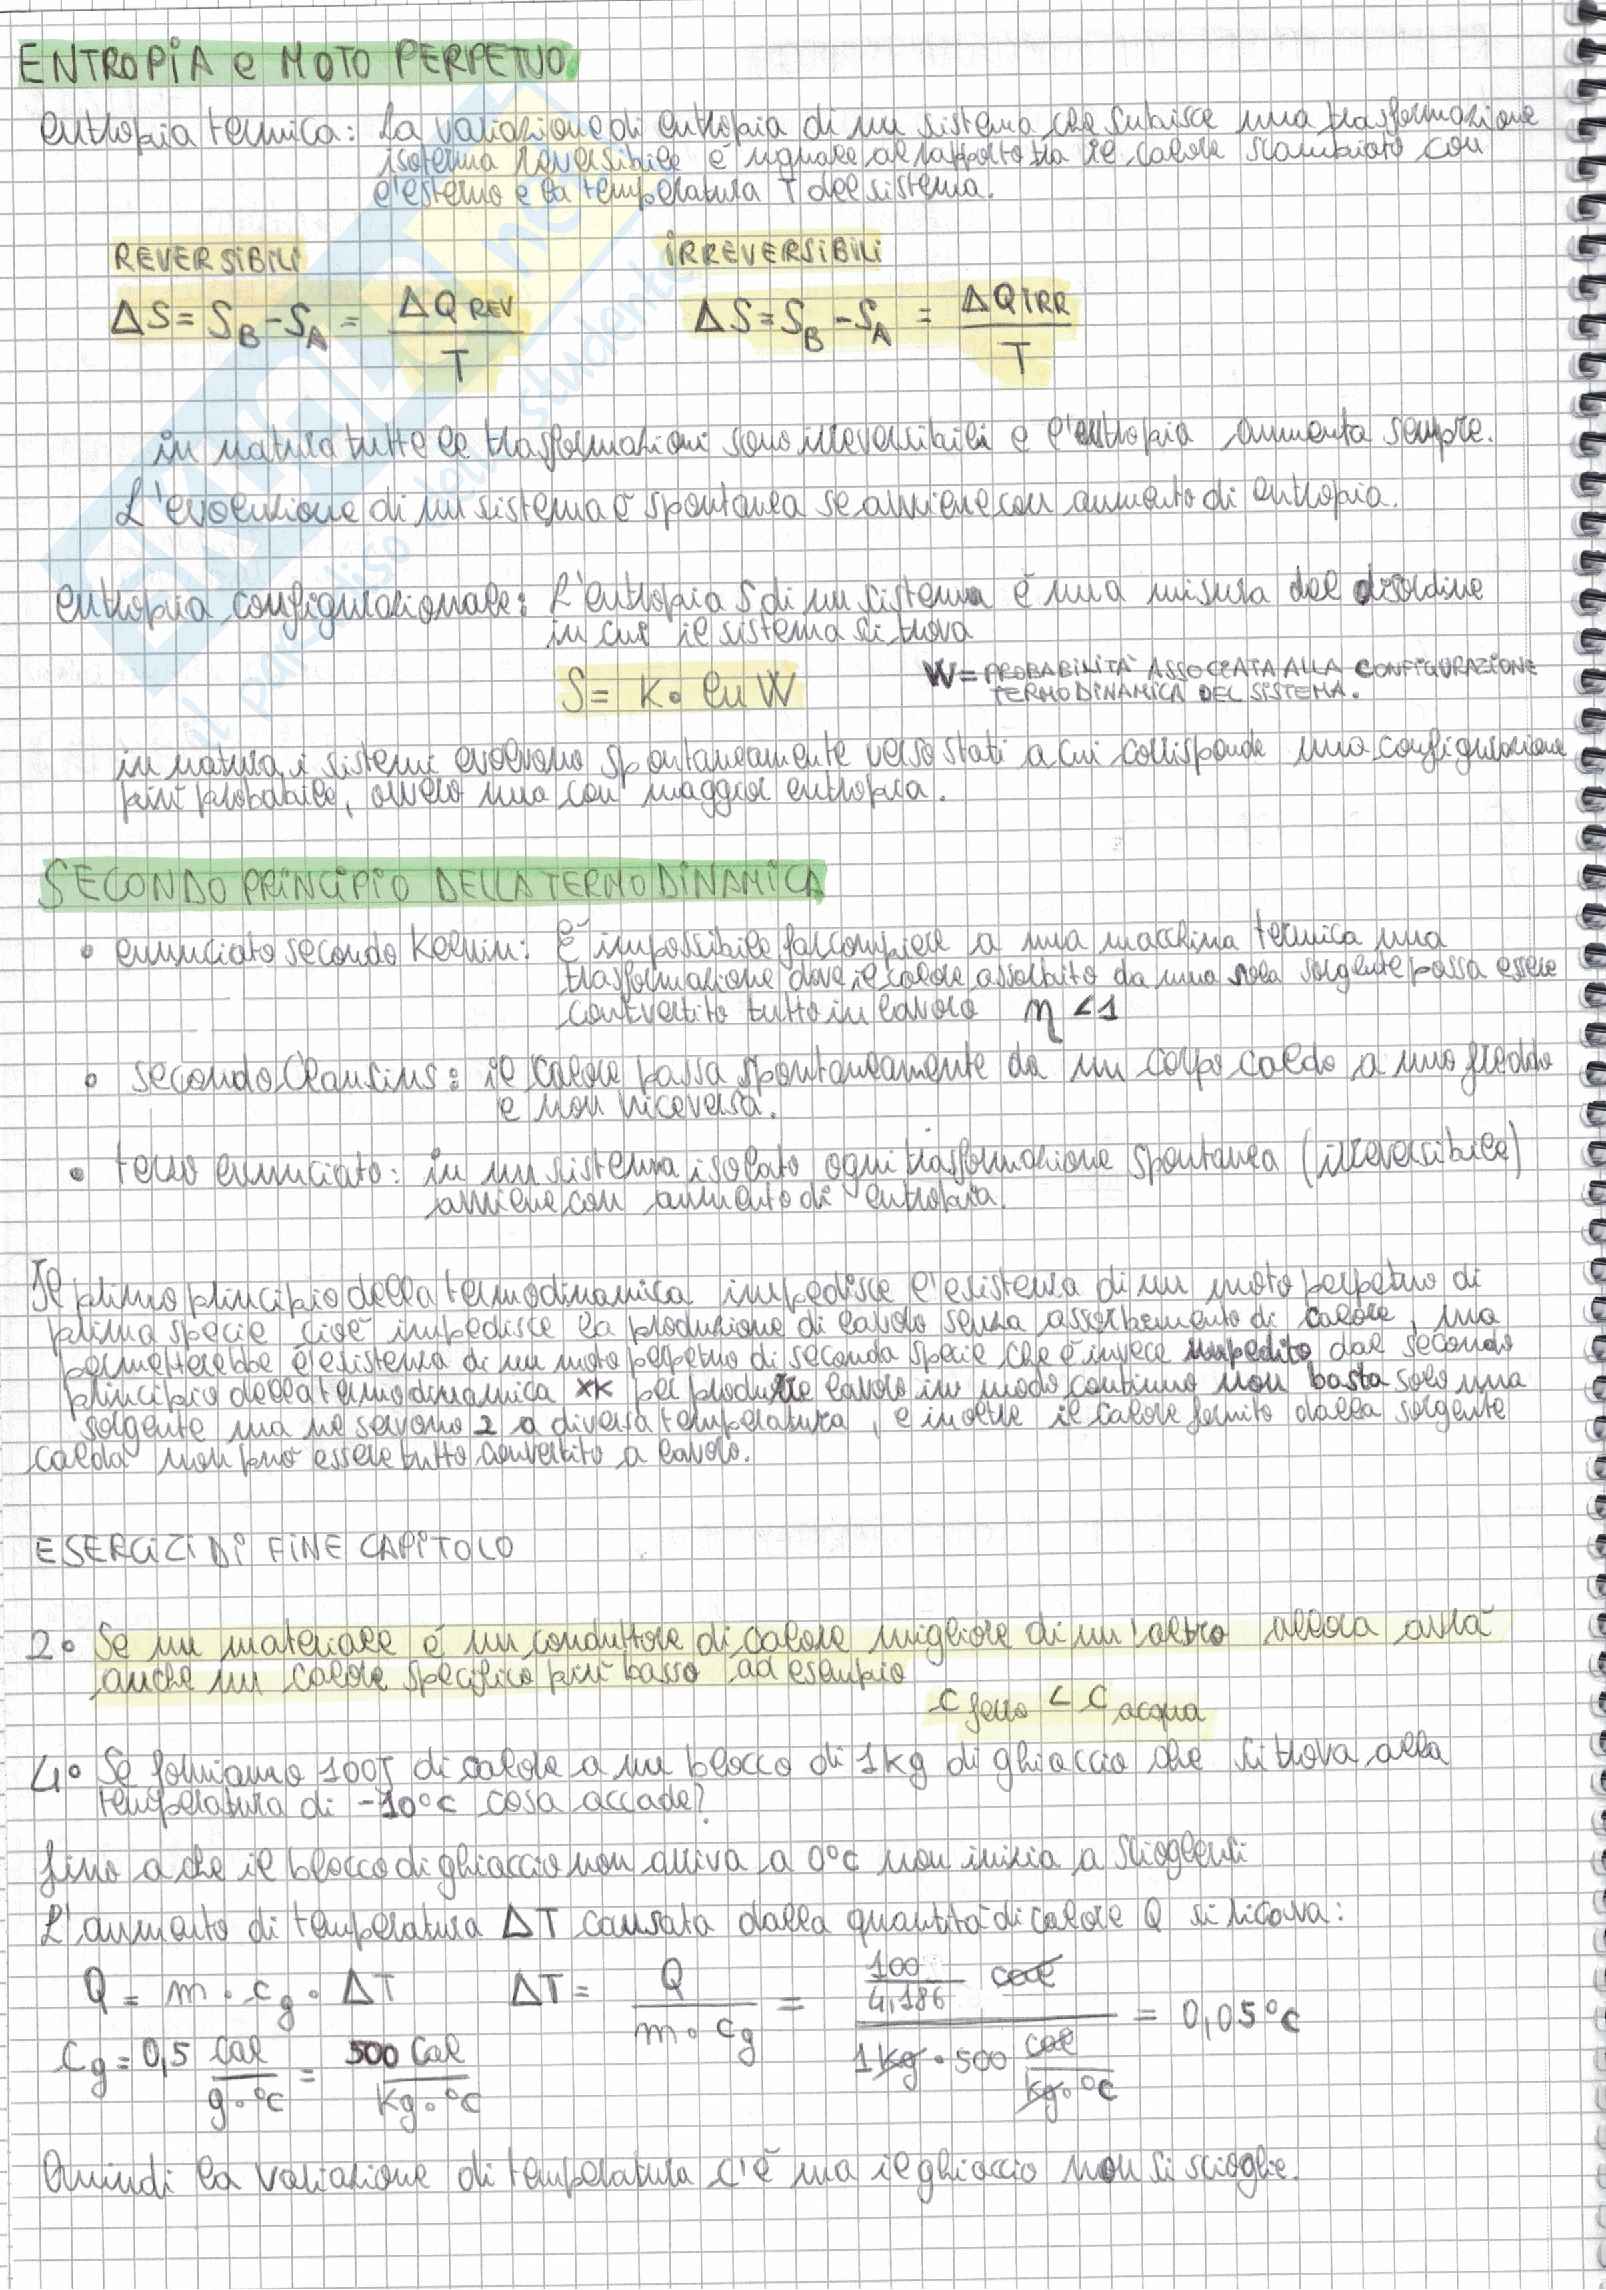 ENTROPIA e MOTO PERPETUO
entropia termica: La variazione di entropia di un sistema che subisce una trasformazione
isoterma reversibile è uguale al rapporto tra il calore scambiato con
l'esterno e la temperatura T del sistema.
REVERSIBILI IRREVERSIBILI
ΔS = S_B - S_A = ΔQ REV / T ΔS = S_B - S_A = ΔQ IRR / T
in natura tutte le trasformazioni sono irreversibili e l'entropia aumenta sempre.
L'evoluzione di un sistema è spontanea se avviene con aumento di entropia.
entropia configurazionale: L'entropia S di un sistema è una misura del disordine
in cui il sistema si trova
S = K · ln W W = PROBABILITÀ ASSOCIATA ALLA CONFIGURAZIONE
TERMODINAMICA DEL SISTEMA.
in natura i sistemi evolvono spontaneamente verso stati a cui corrisponde una configurazione
più probabile, ovvero una con maggior entropia.
SECONDO PRINCIPIO DELLA TERMODINAMICA
• enunciato secondo Kelvin: È impossibile far compiere a una macchina termica una
trasformazione dove il calore assorbito da una sola sorgente possa essere
convertito tutto in lavoro η < 1
• secondo Clausius: il calore passa spontaneamente da un corpo caldo a uno freddo
e non viceversa.
• terzo enunciato: in un sistema isolato ogni trasformazione spontanea (irreversibile)
avviene con aumento di entropia.
Il primo principio della termodinamica impedisce l'esistenza di un moto perpetuo di
prima specie cioè impedisce la produzione di lavoro senza assorbimento di calore, ma
permetterebbe l'esistenza di un moto perpetuo di seconda specie che è invece impedito dal secondo
principio della termodinamica xk per produrre lavoro in modo continuo non basta solo una
sorgente ma ne servono 2 a diversa temperatura, e inoltre il calore fornito dalla sorgente
calda non può essere tutto convertito a lavoro.
ESERCIZI DI FINE CAPITOLO
2° Se un materiale è un conduttore di calore migliore di un'altro allora avrà
anche un calore specifico più basso ad esempio
c ferro < c acqua
4° Se forniamo 100J di calore a un blocco di 1kg di ghiaccio che si trova alla
temperatura di -10°c cosa accade?
fino a che il blocco di ghiaccio non arriva a 0°c non inizia a sciogliersi
L'aumento di temperatura ΔT causata dalla quantità di calore Q si ricava:
Q = m · c_g · ΔT ΔT = Q / m · c_g = 100 / 4,186 cal / 1kg · 500 cal / kg · °c = 0,05°c
c_g = 0,5 cal / g · °c = 500 cal / kg · °c
Quindi la variazione di temperatura c'è ma il ghiaccio non si scioglie.
il paradiso dello studente